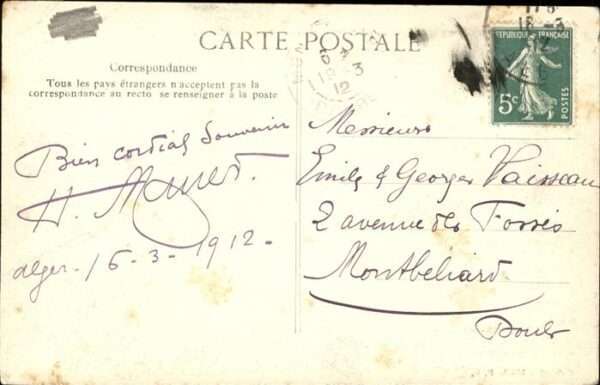 CARTE POSTALE
Correspondance
Tous les pays étrangers n'acceptent pas la
correspondance au recto se renseigner à la poste
RÉPUBLIQUE FRANÇAISE
5c
POSTES
18-3
12
18 3
12
Bien cordial Souvenir
H.
Alger. 16-3-1912.
Messieurs
Emile & Georges Vaisseau
2 avenue des Fossés
Montbéliard
Doubs